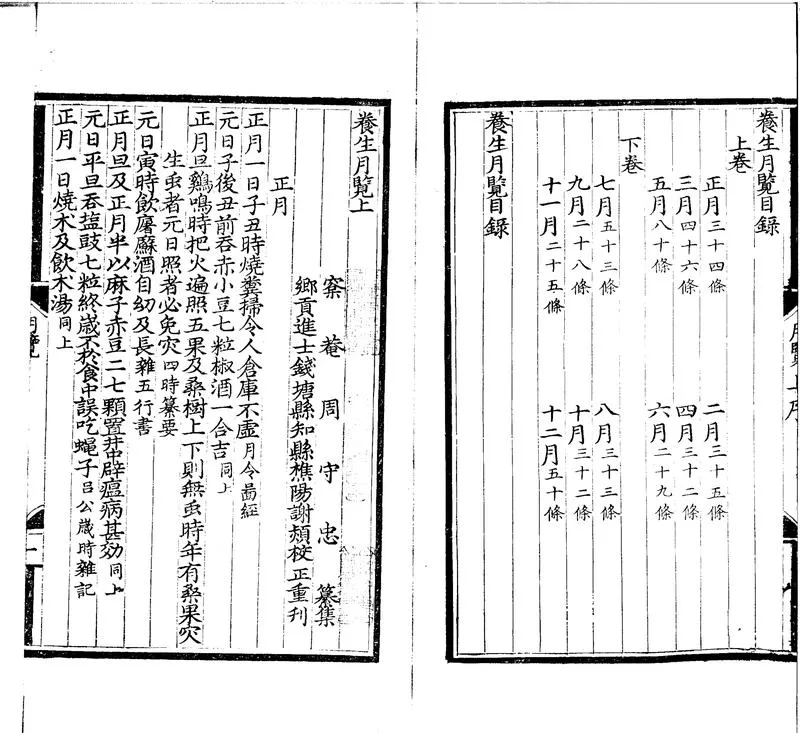 養生月覽目錄
上卷
正月三十四條
二月三十五條
三月四十六條
四月三十二條
五月八十條
六月二十九條
下卷
七月五十三條
八月三十三條
九月二十八條
十月三十二條
十一月二十五條
十二月五十條
養生月覽目錄
養生月覽上
菴周守忠纂集
鄉貢進士錢塘縣知縣樵陽謝熲校正重刊
正月
正月一日子丑時燒糞掃令人倉庫不虛月令啚經
元日子後丑前吞赤小豆七粒椒酒一合吉同上
正月旦鷄鳴時把火遍照五果及桑樹上下則無虫時年有桑果灾
生虫者元日照者必免灾四時纂要
元日寅時飲屠蘇酒自幼及長雜五行書
正月旦及正月半以麻子赤豆二七顆置井中辟瘟病甚効同上
元日平旦吞塩豉七粒終歲不於食中誤吃蝇子吕公歲時雜記
正月一日燒朮及飲朮湯同上
月覽
一